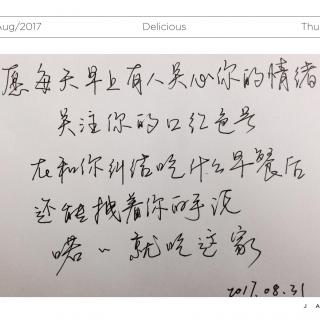 Aug/2017 Delicious Thu
愿每天早上有人关心你的情绪
关注你的口红色号
在和你纠结吃什么早餐后
还能拽着你的手说
喏~就吃这家
2017.08.31
J A